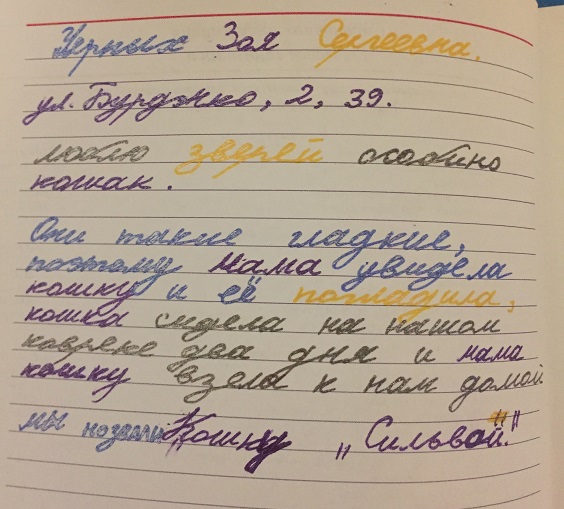 Черных Зоя Сергеевна.
ул. Бурденко, 2, 39.
люблю зверей особино
кошак.
Они такие гладкие,
поэтому мама увидела
кошку и её погладила,
кошка сидела на нашом
ковреке два дня и мама
кошку взела к нам домой
мы нозвали Кошку „Сильвой."